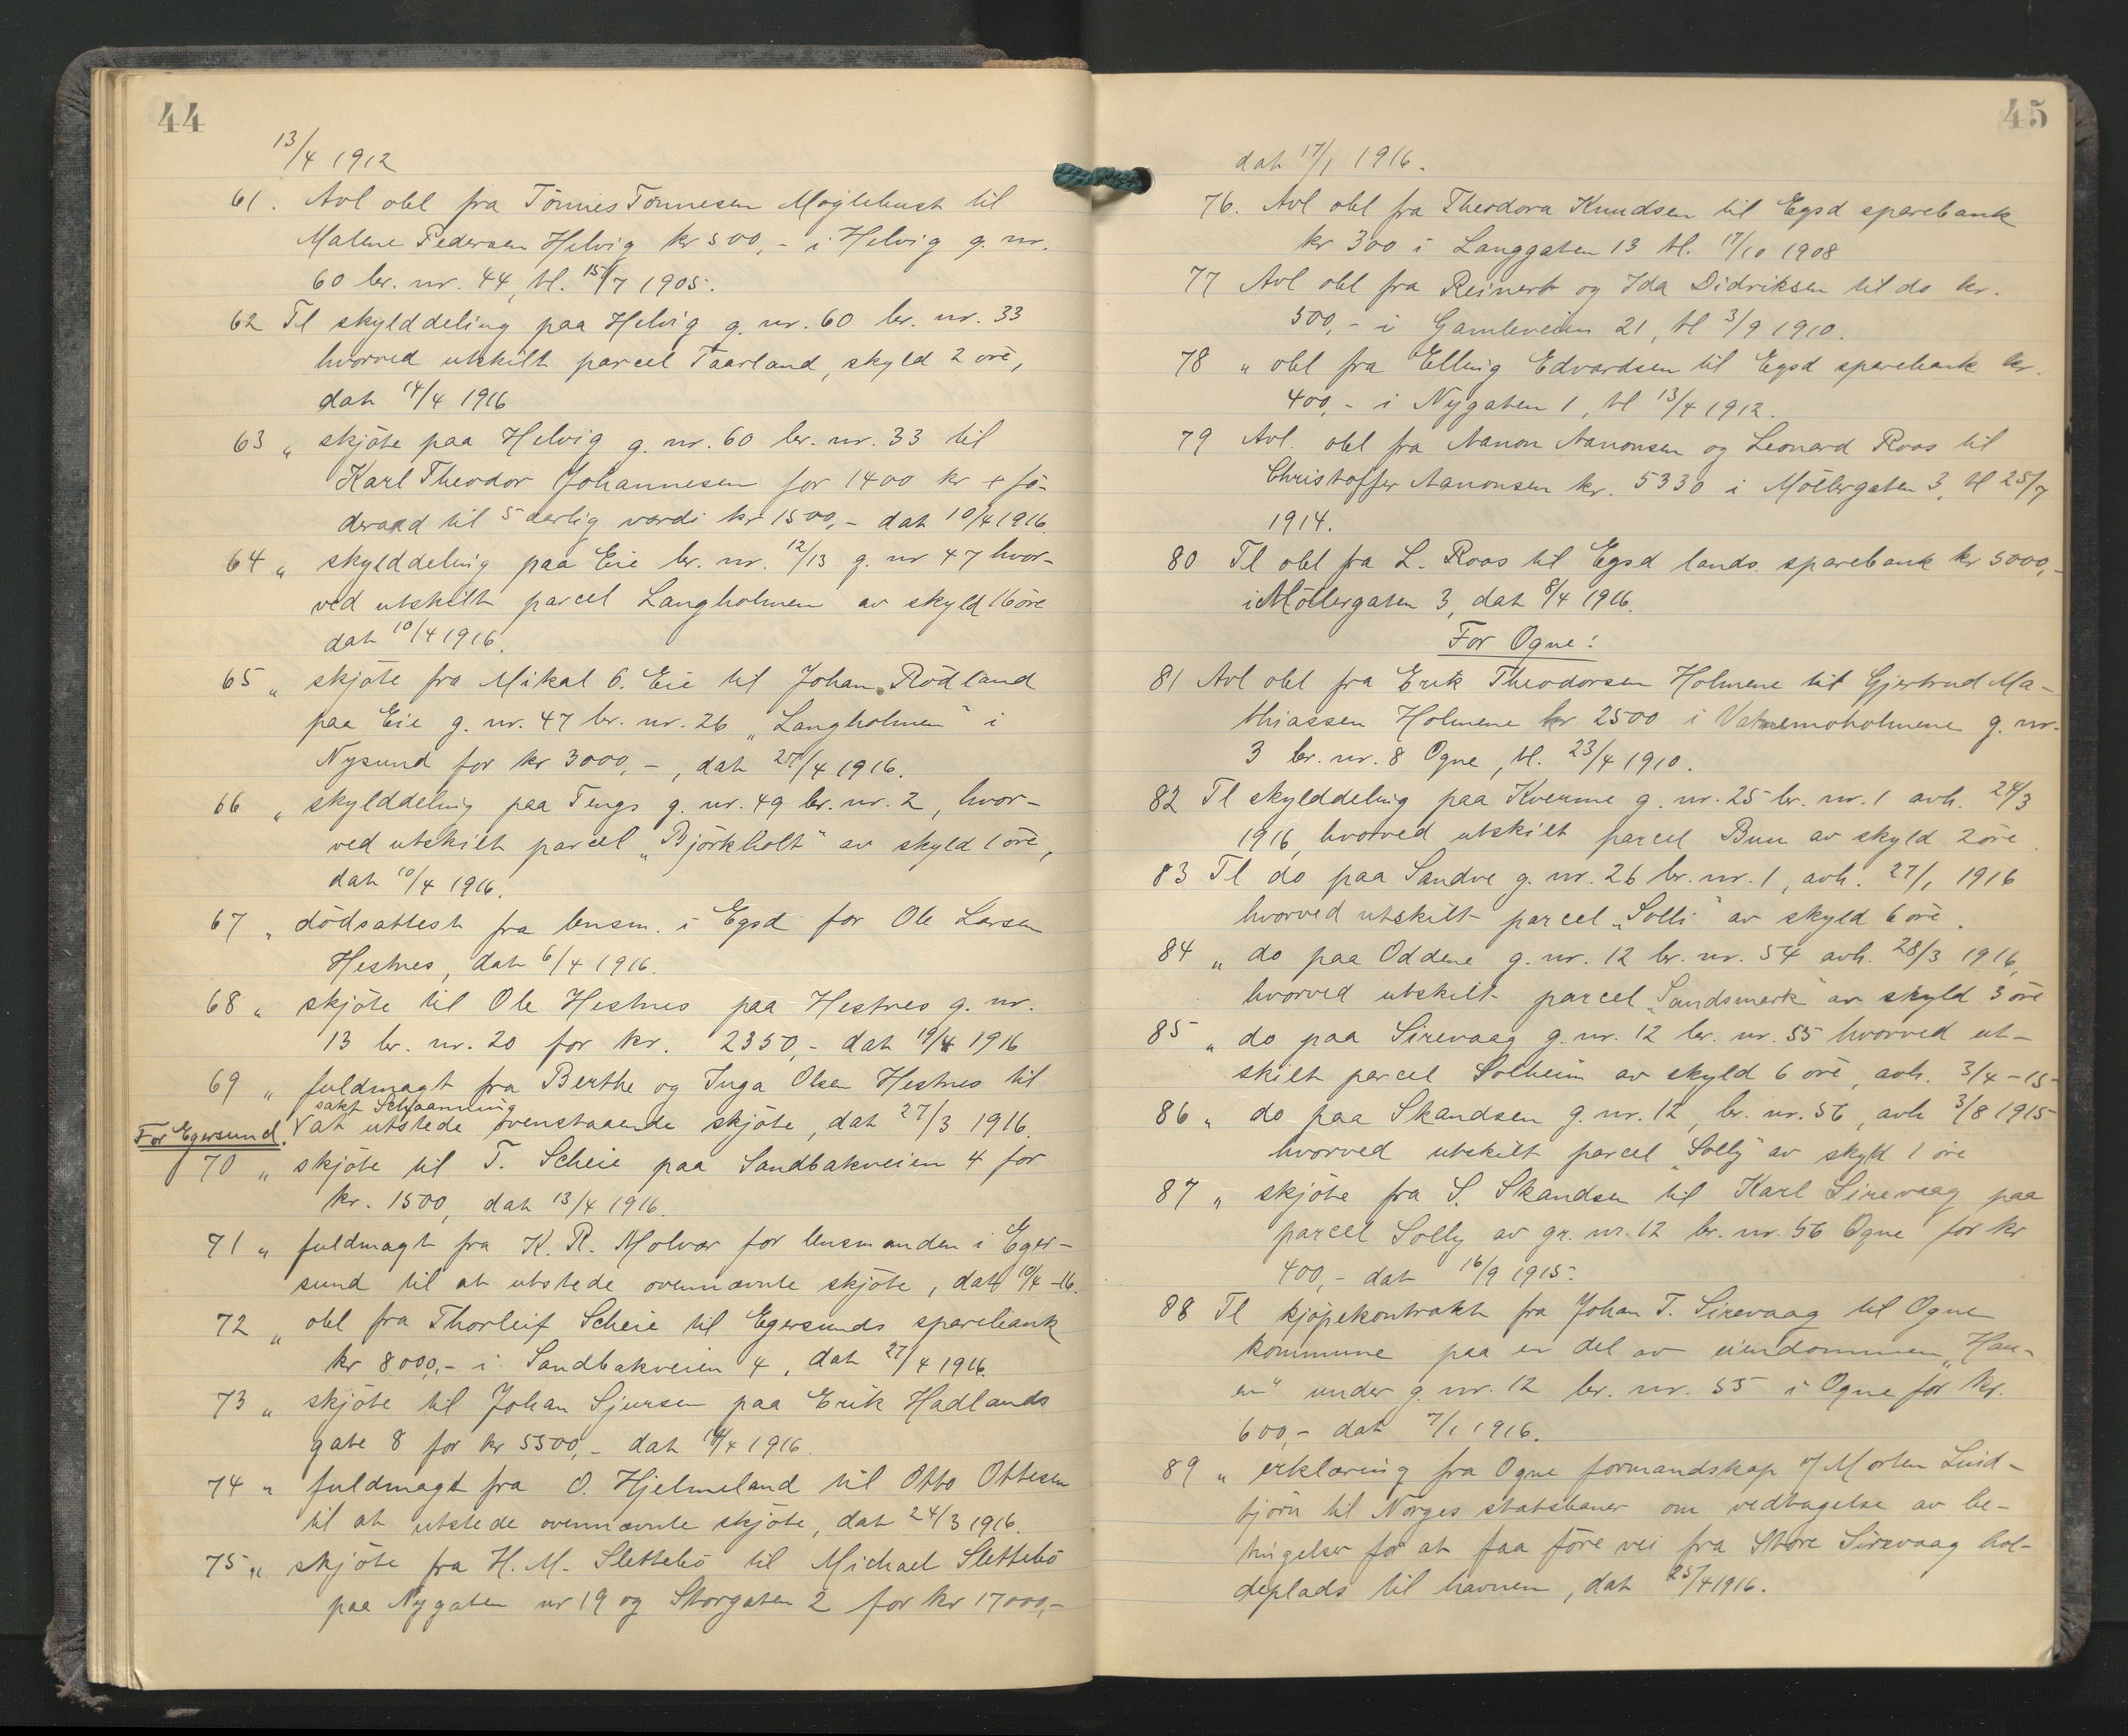 44
13/4 1912
61. Avl obl fra Tönnes Tönnesen Möglebust til
Malene Pedersen Helvig kr 500,- i Helvig g. nr.
60 br. nr. 44, tl. 15/7 1905.
62 Tl skylddeling paa Helvig g. nr. 60 br. nr. 33
hvorved utskilt parcel Taarland, skyld 2 öre,
dat 14/4 1916
63 " skjöte paa Helvig g. nr. 60 br. nr. 33 til
Karl Theodor Johannesen for 1400 kr + fö-
deraad til 5 aarlig værdi kr 1500,- dat 10/4 1916.
64 " skylddeling paa Eie br. nr. 12/13 g. nr 47 hvor-
ved utskilt parcel Langholmen av skyld 16 öre
dat 10/4 1916.
65 " skjöte fra Mikal O. Eie til Johan Rödland
paa Eie g. nr. 47 br. nr. 26 „Langholmen" i
Nysund for kr 3000,-, dat 27/4 1916.
66 " skylddeling paa Tengs g. nr. 49 br. nr. 2, hvor-
ved utskilt parcel „Björkholt" av skyld 1 öre,
dat 10/4 1916.
67 " dödsattest fra lensm. i Egsd for Ole Larsen
Hestnes, dat 6/4 1916.
68 " skjöte til Ole Hestnes paa Hestnes g. nr.
13 br. nr. 20 for kr. 2350,- dat 19/4 1916
69 " fuldmagt fra Berthe og Inga Olsen Hestnes til
sakf Schaanning
For Egersund. at utstede ovenstaaende skjöte, dat 27/3 1916.
70 " skjöte til T. Scheie paa Sandbakveien 4 for
kr. 1500, dat 13/4 1916.
71 " fuldmagt fra K. R. Molvær for lensmanden i Eger-
sund til at utstede ovennævnte skjöte, dat 10/4 -16.
72 " obl fra Thorleif Scheie til Egersunds sparebank
kr 8000,- i Sandbakveien 4, dat 27/4 1916.
73 " skjöte til Johan Sjursen paa Erik Hadlands
gate 8 for kr 5500,- dat 14/4 1916.
74 " fuldmagt fra O. Hjelmeland til Otto Ottesen
til at utstede ovennævnte skjöte, dat 24/3 1916.
75 " skjöte fra H. M. Slettebö til Michael Slettebö
paa Nygaten nr 19 og Storgaten 2 for kr 17000,-
45
dat 17/1 1916.
76. Avl obl fra Theodora Knudsen til Egsd sparebank
kr 300 i Langgaten 13 tl. 17/10 1908
77 Avl obl fra Reinert og Ida Didriksen til do kr.
500,- i Gamleveien 21, tl 3/9 1910.
78 " obl fra Elling Edvardsen til Egsd sparebank kr.
400,- i Nygaten 1, tl 13/4 1912.
79 Avl. obl fra Aanon Aanonsen og Leonard Roos til
Christoffer Aanonsen kr. 5330 i Möllergaten 3, tl 25/7
1914.
80 Tl obl fra L. Roos til Egsd lands. sparebank kr 5000,-
i Möllergaten 3, dat 8/4 1916.
For Ogne:
81 Avl obl fra Erik Theodorsen Holmene til Gjertrud Ma-
thiassen Holmene kr 2500 i Vatnemoholmene g. nr.
3 br. nr. 8 Ogne, tl. 23/4 1910.
82 Tl skylddeling paa Kverme g. nr. 25 br. nr. 1 avh. 24/3
1916, hvorved utskilt parcel Buu av skyld 2 öre.
83 Tl do paa Sandve g. nr. 26 br. nr. 1, avh. 27/1 1916
hvorved utskilt parcel „Solli" av skyld 6 öre.
84 " do paa Oddene g. nr. 12 br. nr. 54 avh. 28/3 1916,
hvorved utskilt parcel „Sandsmark" av skyld 3 öre
85 " do paa Sirevaag g. nr. 12 br. nr. 55 hvorved ut-
skilt parcel Solheim av skyld 6 öre, avh. 3/4 -15
86 " do paa Skandsen g. nr. 12, br. nr. 56, avh 3/8 1915
hvorved utskilt parcel „Solly" av skyld 1 öre
87 " skjöte fra S. Skandsen til Karl Sirevaag paa
parcel Solly av gr. nr. 12 br. nr. 56 Ogne for kr
400,- dat 16/9 1915.
88 Tl kjöpekontrakt fra Johan T. Sirevaag til Ogne
kommune paa en del av eiendommen „Hau-
en" under g. nr. 12 br. nr. 55 i Ogne for kr.
600,- dat 7/1 1916.
89 " erklæring fra Ogne formandskap v/ Morten Lind-
tjörn til Norges statsbaner om vedtagelse av be-
tingelser for at faa före vei fra Store Sirevaag hol-
deplads til havnen, dat 25/4 1916.